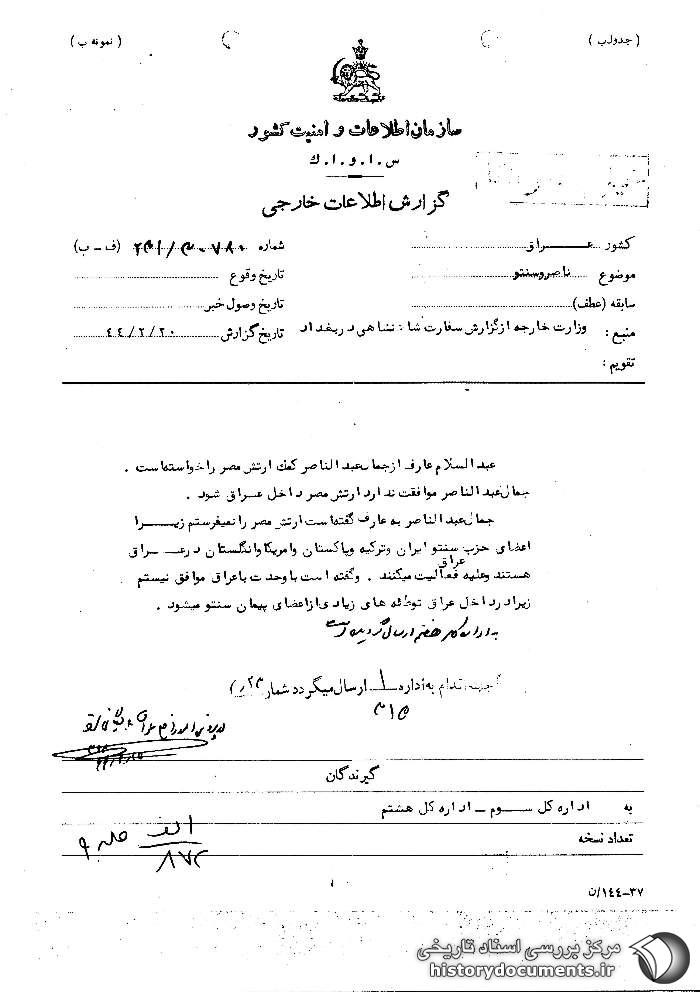 ( جدول ب )
( نمونه ب )
سازمان اطلاعات و امنیت کشور
س . ا . و . ا . ك
گزارش اطلاعات خارجی
کشور عــــراق
شماره (ف ـ ب)
موضوع ناصر و سنتو
تاریخ وقوع
سابقه (عطف)
تاریخ وصول خبر
منبع : وزارت خارجه از گزارش سفارت شاهنشاهی در بغداد
تاریخ گزارش ٤٤/٢/٢٠
تقویم :
عبدالسلام عارف از جمال عبدالناصر کمك ارتش مصر را خواسته است .
جمال عبدالناصر موافقت ندارد ارتش مصر داخل عراق شود .
جمال عبدالناصر به عارف گفته است ارتش مصر را نمیفرستم زیـــرا
اعضای حزب سنتو ایران و ترکیه و پاکستان و امریکا و انگلستان در عـــراق
هستند و علیه عراق فعالیت میکنند . و گفته است با وحدت با عراق موافق نیستم
زیرا در داخل عراق توطئه های زیادی از اعضای پیمان سنتو میشود .
به اداره کل هفتم ارسال گردیده است
جهت اقدام به اداره ١ ارسال میگردد شمار
٣١٥
گیرندگان
به اداره کل ســـوم ـ اداره کل هشتم
تعداد نسخه
الف
٨٧٢
٣٧-١٤٤/ن
مرکز بررسی اسناد تاریخی
historydocuments.ir